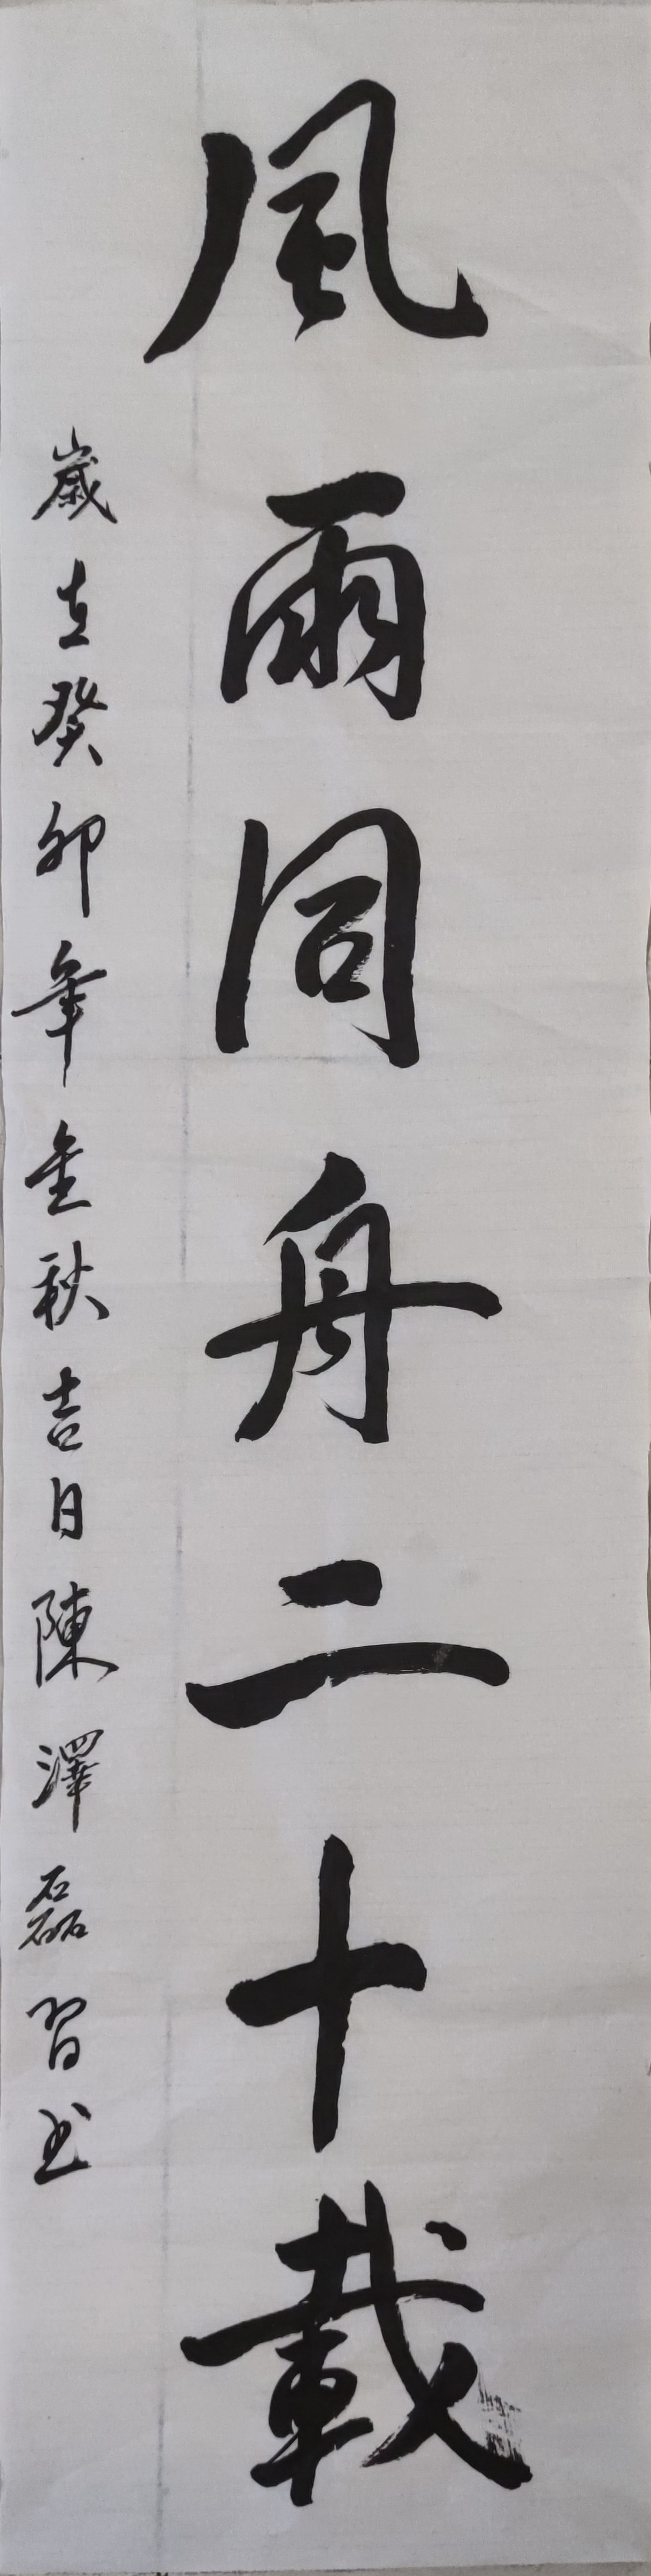 風雨同舟二十載
歲在癸卯年金秋吉日陳澤磊習书